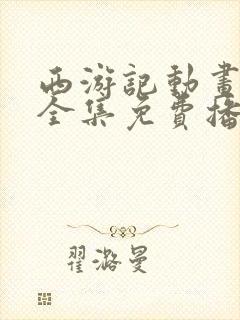 西游記動畫
全集免費播
翟潞曼